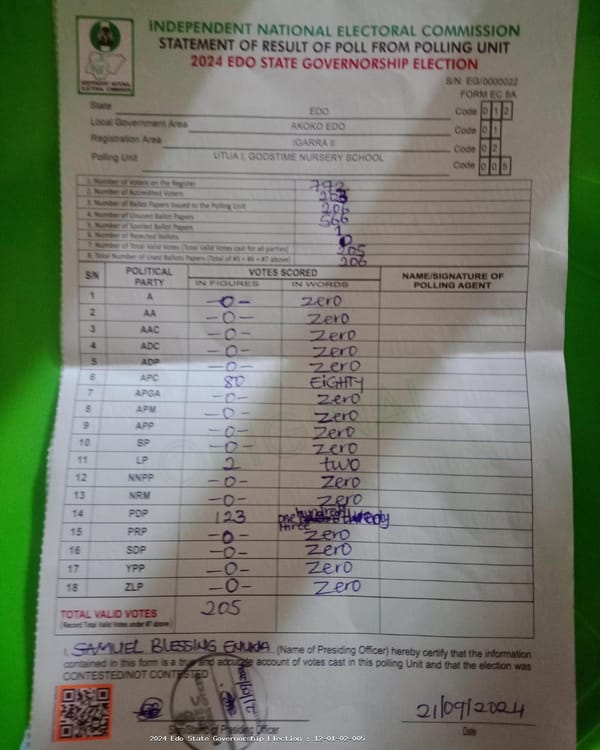 INDEPENDENT NATIONAL ELECTORAL COMMISSION
STATEMENT OF RESULT OF POLL FROM POLLING UNIT
2024 EDO STATE GOVERNORSHIP ELECTION
INDEPENDENT NATIONAL ELECTORAL COMMISSION
S/N: EG/0000022
FORM EC 8A
State EDO Code 0 1 2
Local Government Area AKOKO EDO Code 0 1
Registration Area IGARRA II Code 0 2
Polling Unit UTUA I, GODSTIME NURSERY SCHOOL Code 0 0 5
1. Number of Voters on the Register 772
2. Number of Accredited Voters
3. Number of Ballot Papers Issued to the Polling Unit
4. Number of Unused Ballot Papers 566
5. Number of Spoiled Ballot Papers 1
6. Number of Rejected Ballots
7. Number of Total Valid Votes (Total Valid Votes cast for all parties) 205
8. Total Number of Used Ballot Papers (Total of #5 + #6 + #7 above) 206
S/N POLITICAL PARTY VOTES SCORED NAME/SIGNATURE OF POLLING AGENT
IN FIGURES IN WORDS
1 A -0- zero
2 AA -0- zero
3 AAC -0- zero
4 ADC -0- zero
5 ADP -0- zero
6 APC 80 EIGHTY
7 APGA -0- zero
8 APM -0- zero
9 APP -0- zero
10 SP -0- zero
11 LP 2 two
12 NNPP -0- zero
13 NRM -0- zero
14 PDP 123 one hundred twenty three
15 PRP -0- zero
16 SDP -0- zero
17 YPP -0- zero
18 ZLP -0- zero
TOTAL VALID VOTES 205
(Record Total Valid Votes under #7 above)
I, SAMUEL BLESSING (Name of Presiding Officer) hereby certify that the information
contained in this form is a true and accurate account of votes cast in this polling Unit and that the election was
CONTESTED/NOT CONTESTED
21/09/2024
Officer Date
2024 Edo State Governorship Election : 12-01-02-005